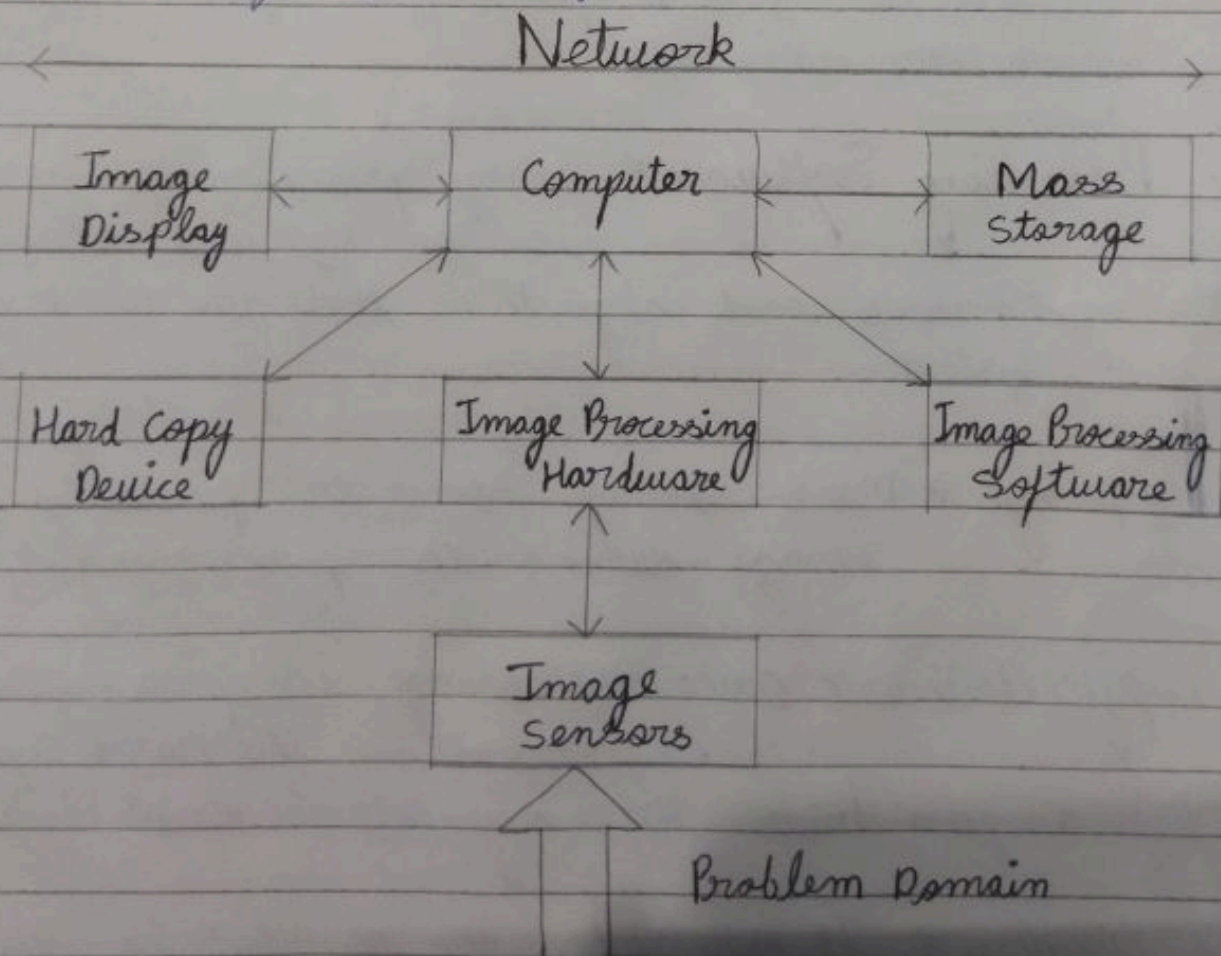 Network
Image
Display
Computer
Mass
Storage
Hard Copy
Device
Image Processing
Hardware
Image Processing
Software
Image
Sensors
Problem Domain